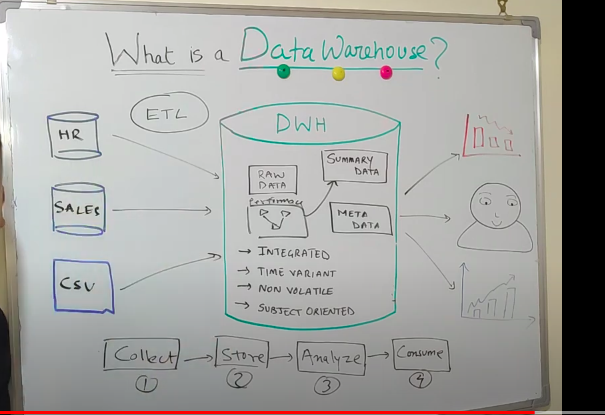 What is a Data Warehouse?
ETL
HR
SALES
CSV
DWH
RAW
DATA
SUMMARY
DATA
Performance
META
DATA
→ INTEGRATED
→ TIME VARIANT
→ NON VOLATILE
→ SUBJECT ORIENTED
Collect → Store → Analyze → Consume
1 2 3 4